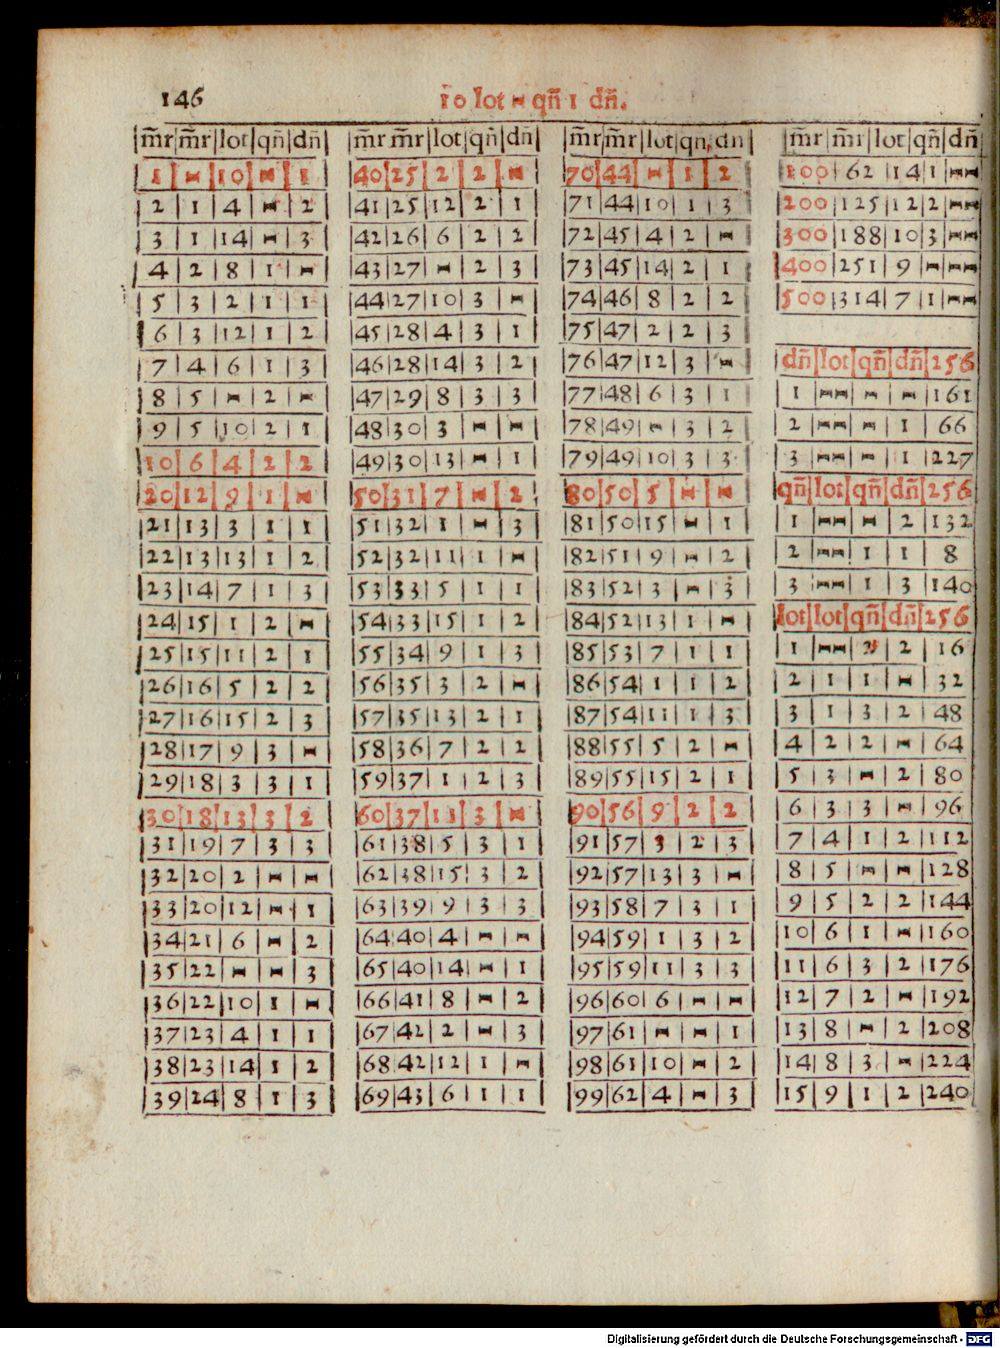 146
10 lot - qñ 1 dñ.
|m̃r|m̃r|lot|qñ|dñ|
|1|-|10|-|1|
|2|1|4|-|2|
|3|1|14|-|3|
|4|2|8|1|-|
|5|3|2|1|1|
|6|3|12|1|2|
|7|4|6|1|3|
|8|5|-|2|-|
|9|5|10|2|1|
|10|6|4|2|2|
|20|12|9|1|-|
|21|13|3|1|1|
|22|13|13|1|2|
|23|14|7|1|3|
|24|15|1|2|-|
|25|15|11|2|1|
|26|16|5|2|2|
|27|16|15|2|3|
|28|17|9|3|-|
|29|18|3|3|1|
|30|18|13|3|2|
|31|19|7|3|3|
|32|20|2|-|-|
|33|20|12|-|1|
|34|21|6|-|2|
|35|22|-|-|3|
|36|22|10|1|-|
|37|23|4|1|1|
|38|23|14|1|2|
|39|24|8|1|3|
|m̃r m̃r|lot|qñ|dñ|
|40|25|2|2|-|
|41|25|12|2|1|
|42|26|6|2|2|
|43|27|-|2|3|
|44|27|10|3|-|
|45|28|4|3|1|
|46|28|14|3|2|
|47|29|8|3|3|
|48|30|3|-|-|
|49|30|13|-|1|
|50|31|7|-|2|
|51|32|1|-|3|
|52|32|11|1|-|
|53|33|5|1|1|
|54|33|15|1|2|
|55|34|9|1|3|
|56|35|3|2|-|
|57|35|13|2|1|
|58|36|7|2|2|
|59|37|1|2|3|
|60|37|11|3|-|
|61|38|5|3|1|
|62|38|15|3|2|
|63|39|9|3|3|
|64|40|4|-|-|
|65|40|14|-|1|
|66|41|8|-|2|
|67|42|2|-|3|
|68|42|12|1|-|
|69|43|6|1|1|
|m̃r|m̃r|lot|qn|dn|
|70|44|-|1|2|
|71|44|10|1|3|
|72|45|4|2|-|
|73|45|14|2|1|
|74|46|8|2|2|
|75|47|2|2|3|
|76|47|12|3|-|
|77|48|6|3|1|
|78|49|-|3|2|
|79|49|10|3|3|
|80|50|5|-|-|
|81|50|15|-|1|
|82|51|9|-|2|
|83|52|3|-|3|
|84|52|13|1|-|
|85|53|7|1|1|
|86|54|1|1|2|
|87|54|11|1|3|
|88|55|5|2|-|
|89|55|15|2|1|
|90|56|9|2|2|
|91|57|3|2|3|
|92|57|13|3|-|
|93|58|7|3|1|
|94|59|1|3|2|
|95|59|11|3|3|
|96|60|6|-|-|
|97|61|-|-|1|
|98|61|10|-|2|
|99|62|4|-|3|
|m̃r|m̃r|lot|qñ|dñ
|100|62|14|1|--
|200|125|12|2|--
|300|188|10|3|--
|400|251|9|-|--
|500|314|7|1|--
|dñ|lot|qñ|dñ|256
|1|--|-|-|161
|2|--|-|1|66
|3|--|-|1|227
|qñ|lot|qñ|dñ|256
|1|--|-|2|132
|2|--|1|1|8
|3|--|1|3|140
|lot|lot|qñ|dñ|256
|1|--|2|2|16
|2|1|1|-|32
|3|1|3|2|48
|4|2|2|-|64
|5|3|-|2|80
|6|3|3|-|96
|7|4|1|2|112
|8|5|-|-|128
|9|5|2|2|144
|10|6|1|-|160
|11|6|3|2|176
|12|7|2|-|192
|13|8|-|2|208
|14|8|3|-|224
|15|9|1|2|240
Digitalisierung gefördert durch die Deutsche Forschungsgemeinschaft - DFG